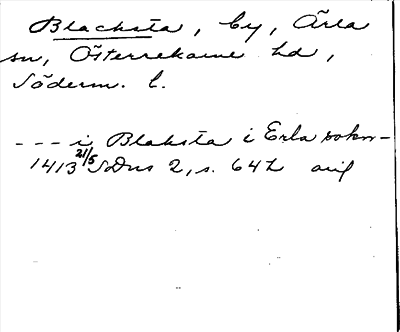 Blacksta, by, Ärla
sn, Österrekarne hd,
Söderm. l.
--- i Blaksta i Erla sokn -
1413 21/5 SDns 2, s. 642 avil